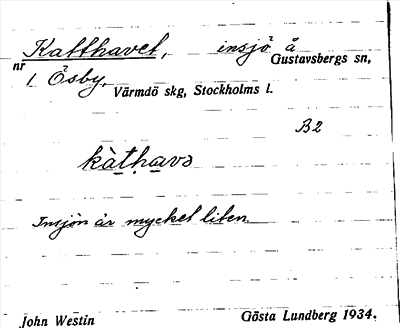 Katthavet, insjö å
nr Gustavsbergs sn,
1 Ösby, Värmdö skg, Stockholms l.
B2
kàthavə
Insjön är mycket liten.
John Westin Gösta Lundberg 1934.